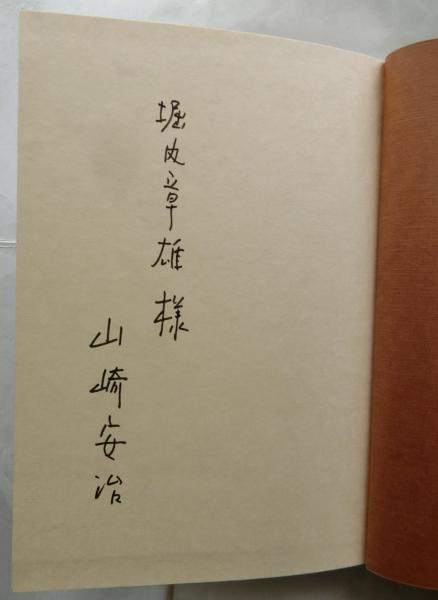 堀内章雄様
山崎安治